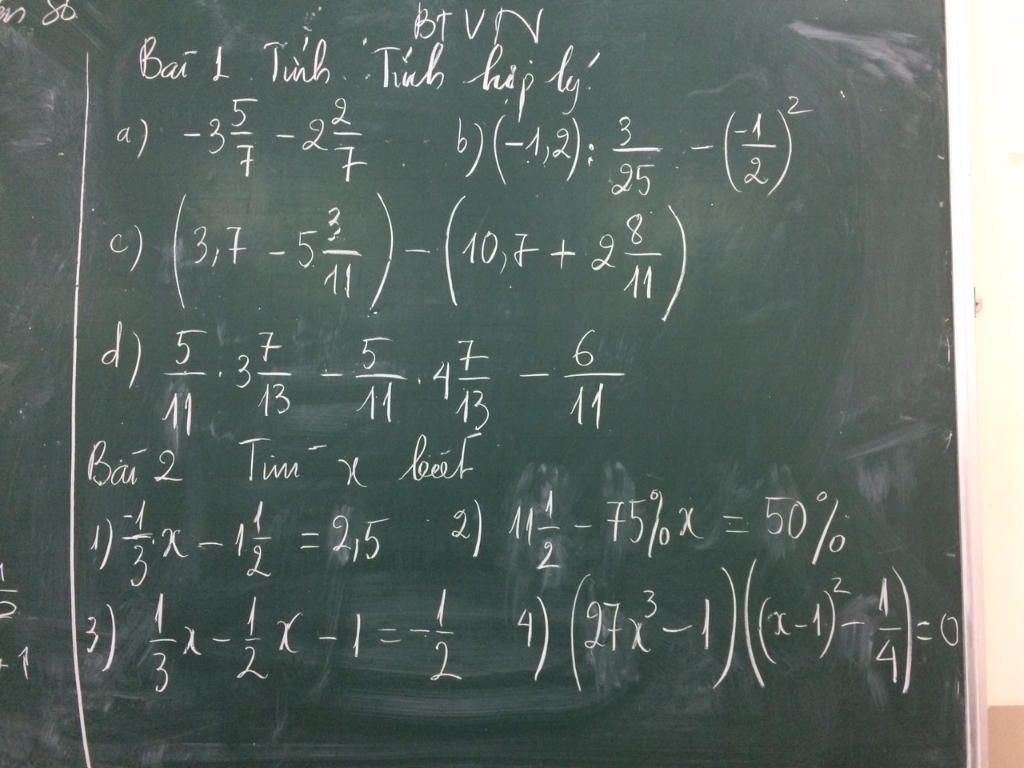 BTVN
Bài 1 Tính Tính hợp lý
a) -3 5/7 - 2 2/7 b) (-1,2) : 3/25 - (-1/2)²
c) (3,7 - 5 3/11) - (10,7 + 2 8/11)
d) 5/11 . 3 7/13 - 5/11 . 4 7/13 - 6/11
Bài 2 Tìm x biết
1) -1/3 x - 1 1/2 = 2,5 2) 11 1/2 - 75% x = 50%
3) 1/3 x - 1/2 x - 1 = -1/2 4) (27x³ - 1)((x-1)² - 1/4) = 0